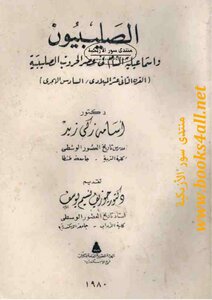 الصليبيون
منتدى سور الأزبكية
واسماعيلية الشام فى عصر الحروب الصليبية
(القرن الثانى عشر الميلادى / السادس الهجرى)
دكتور
أسامه زكى زيد
مدرس تاريخ العصور الوسطى
كلية التربية - جامعة طنطا
تقديم
دكتور جوزيف نسيم يوسف
أستاذ تاريخ العصور الوسطى
كلية الآداب - جامعة الإسكندرية
١٩٨٠
منتدى سور الأزبكية
books4all.net